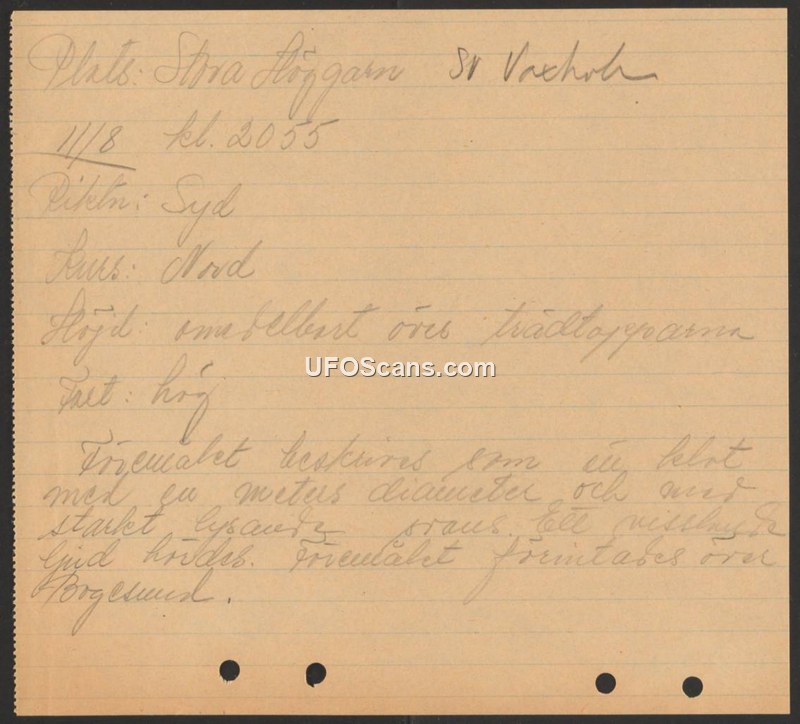 Plats: Stora Höggarn SV Vaxholm
11/8 kl. 2055
Riktn: Syd
Kurs: Nord
Höjd: omedelbart över trädtopparna
UFOScans.com
Fart: hög
Föremålet beskrives som en klot
med en meters diameter och med
starkt lysande svans. Ett visslande
ljud hördes. Föremålet förintades över
Bogesund.